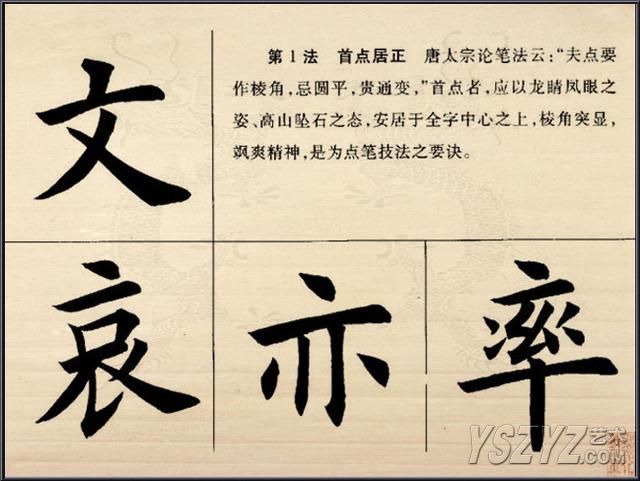 文
第1法 首点居正 唐太宗论笔法云：“夫点要
作棱角，忌圆平，贵通变，”首点者，应以龙睛凤眼之
姿、高山坠石之态，安居于全字中心之上，棱角突显，
飒爽精神，是为点笔技法之要诀。
哀 亦 率
YSZYZ艺术
.com